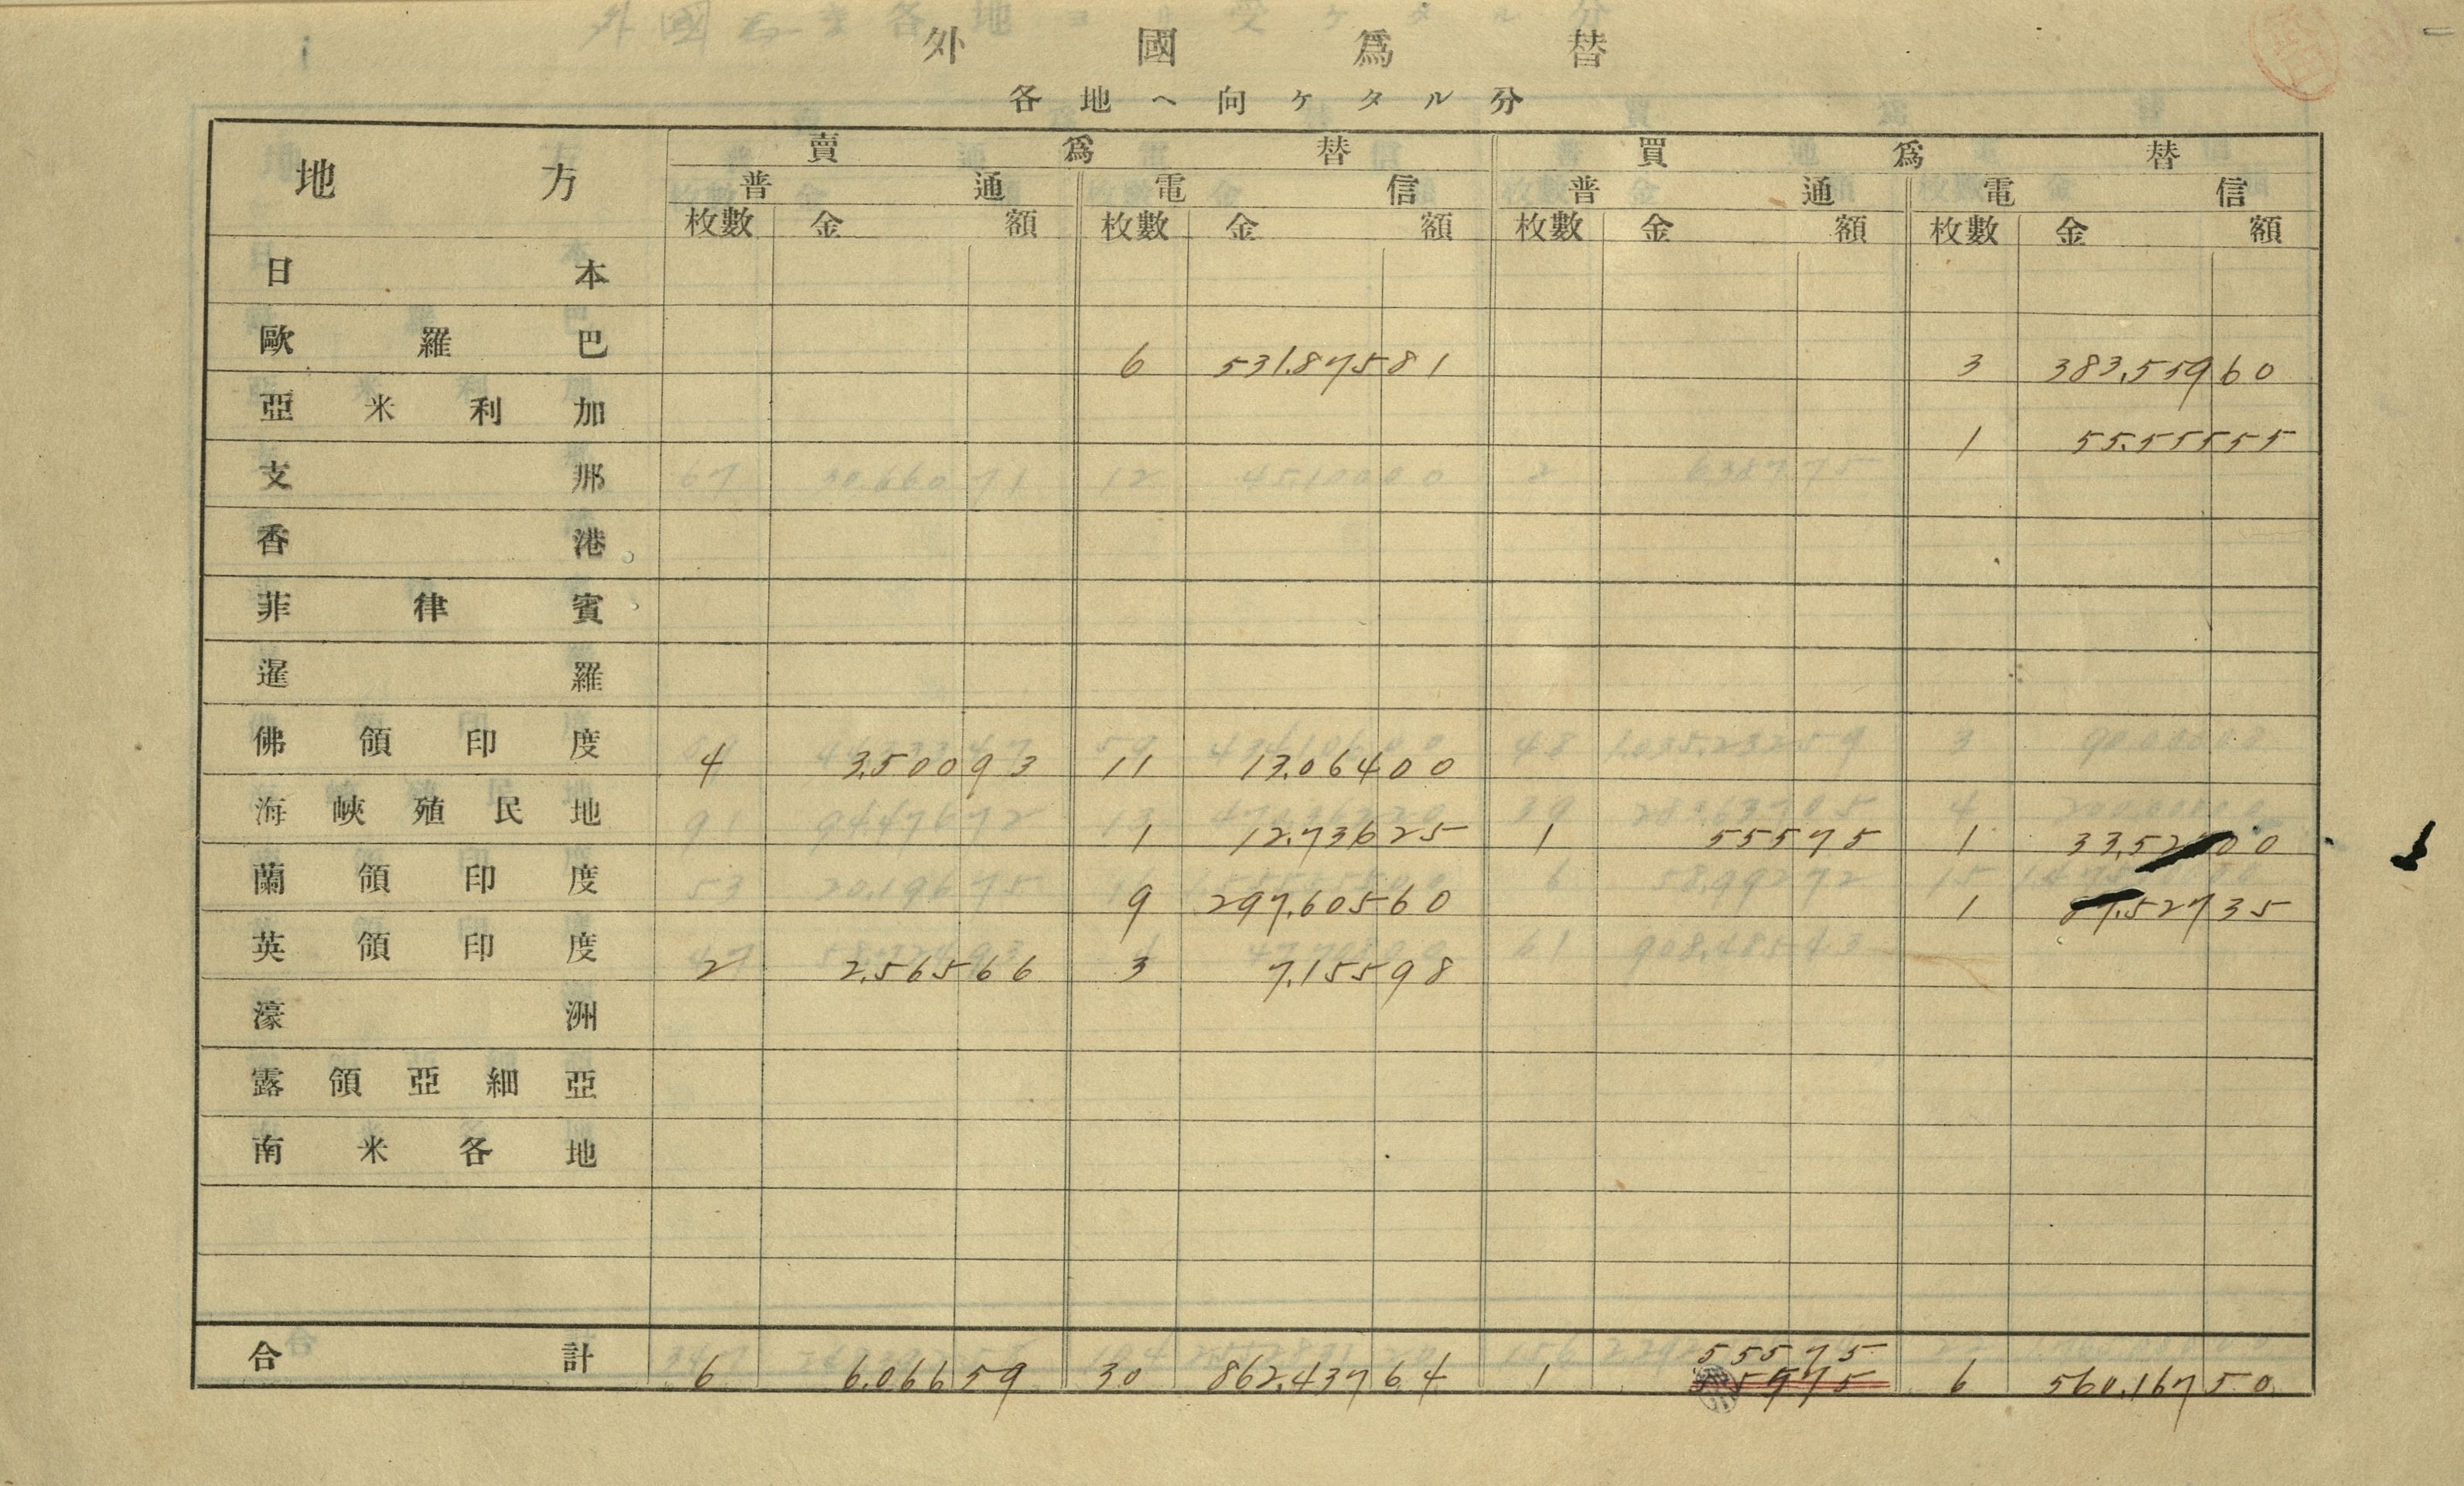 外國爲替
各地ヘ向ケタル分
地方 賣爲替 買爲替
普通 電信 普通 電信
枚數 金額 枚數 金額 枚數 金額 枚數 金額
日本
歐羅巴 6 531,875 81 3 383,559 60
亞米利加 1 55,555 55
支那
香港
菲律賓
暹羅
佛領印度 4 3,500 93 11 13,064 00
海峽殖民地 1 12,736 25 1 555 75 1 33,525 00
蘭領印度 9 297,605 60 1 87,527 35
英領印度 2 2,565 66 3 7,155 98
濠洲
露領亞細亞
南米各地
555 75
合計 6 6,066 59 30 862,437 64 1 559 75 6 560,167 50